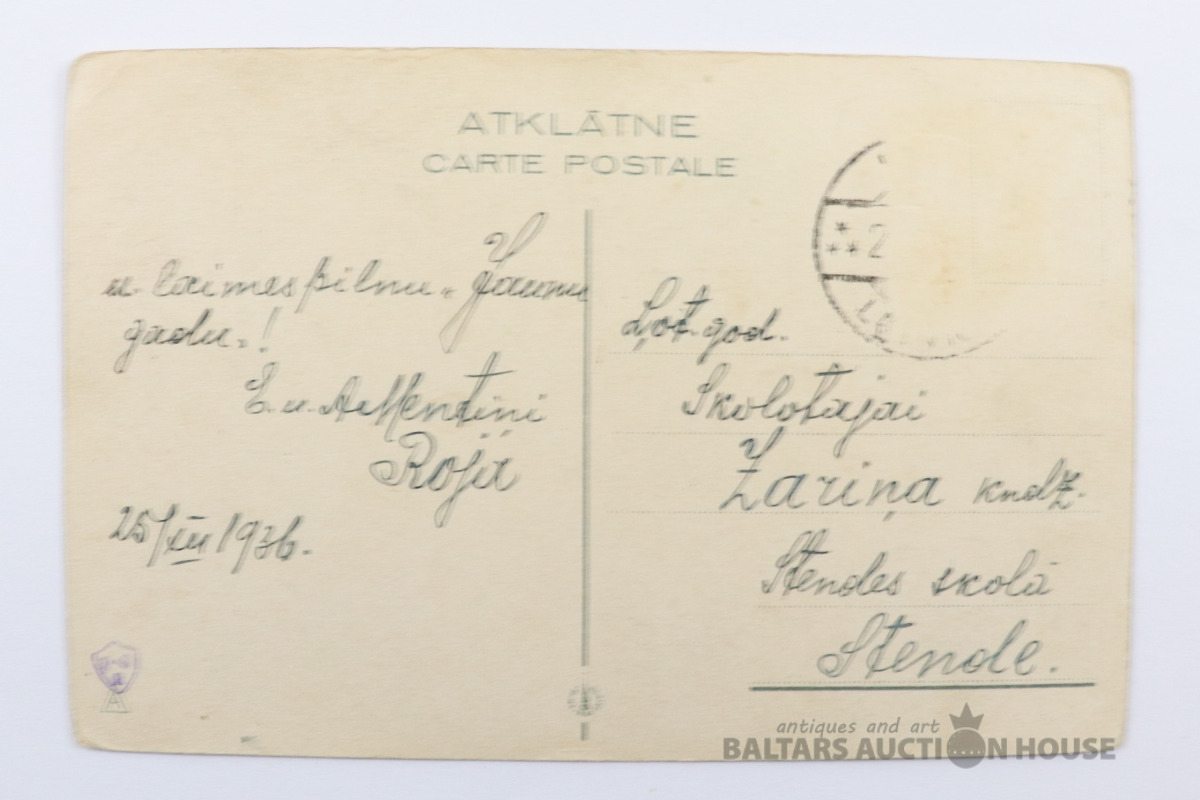 ATKLĀTNE
CARTE POSTALE
u. laimespilnu. Jaunu
gadu.!
E. u. A. Mentiņi
Rojā
25/XII 1936.
Ļot. god.
Skolotājai
Zariņa kndz.
Stendes skolā
Stende.
antiques and art
BALTARS AUCTION HOUSE